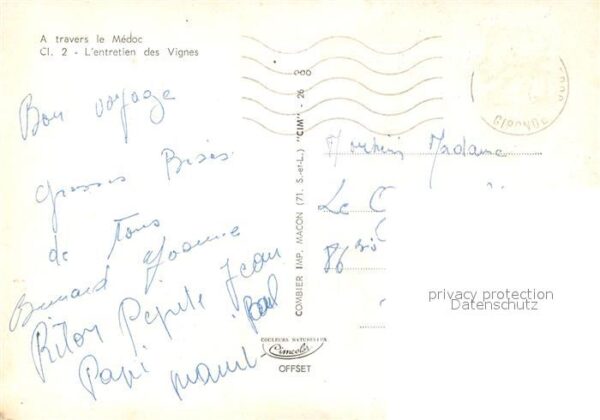 A travers le Médoc
Cl. 2 - L'entretien des Vignes
Bon voyage
grosses Bises
de tous
Bernard Joanne
Riton Pépète Jean
Paul
Papi mami
COMBIER IMP. MACON (71. S.-et-L.) "CIM" - 26
COULEURS NATURELLES
Cimcolor
OFFSET
GIRONDE
Monsieur Madame
Le C
86
privacy protection
Datenschutz